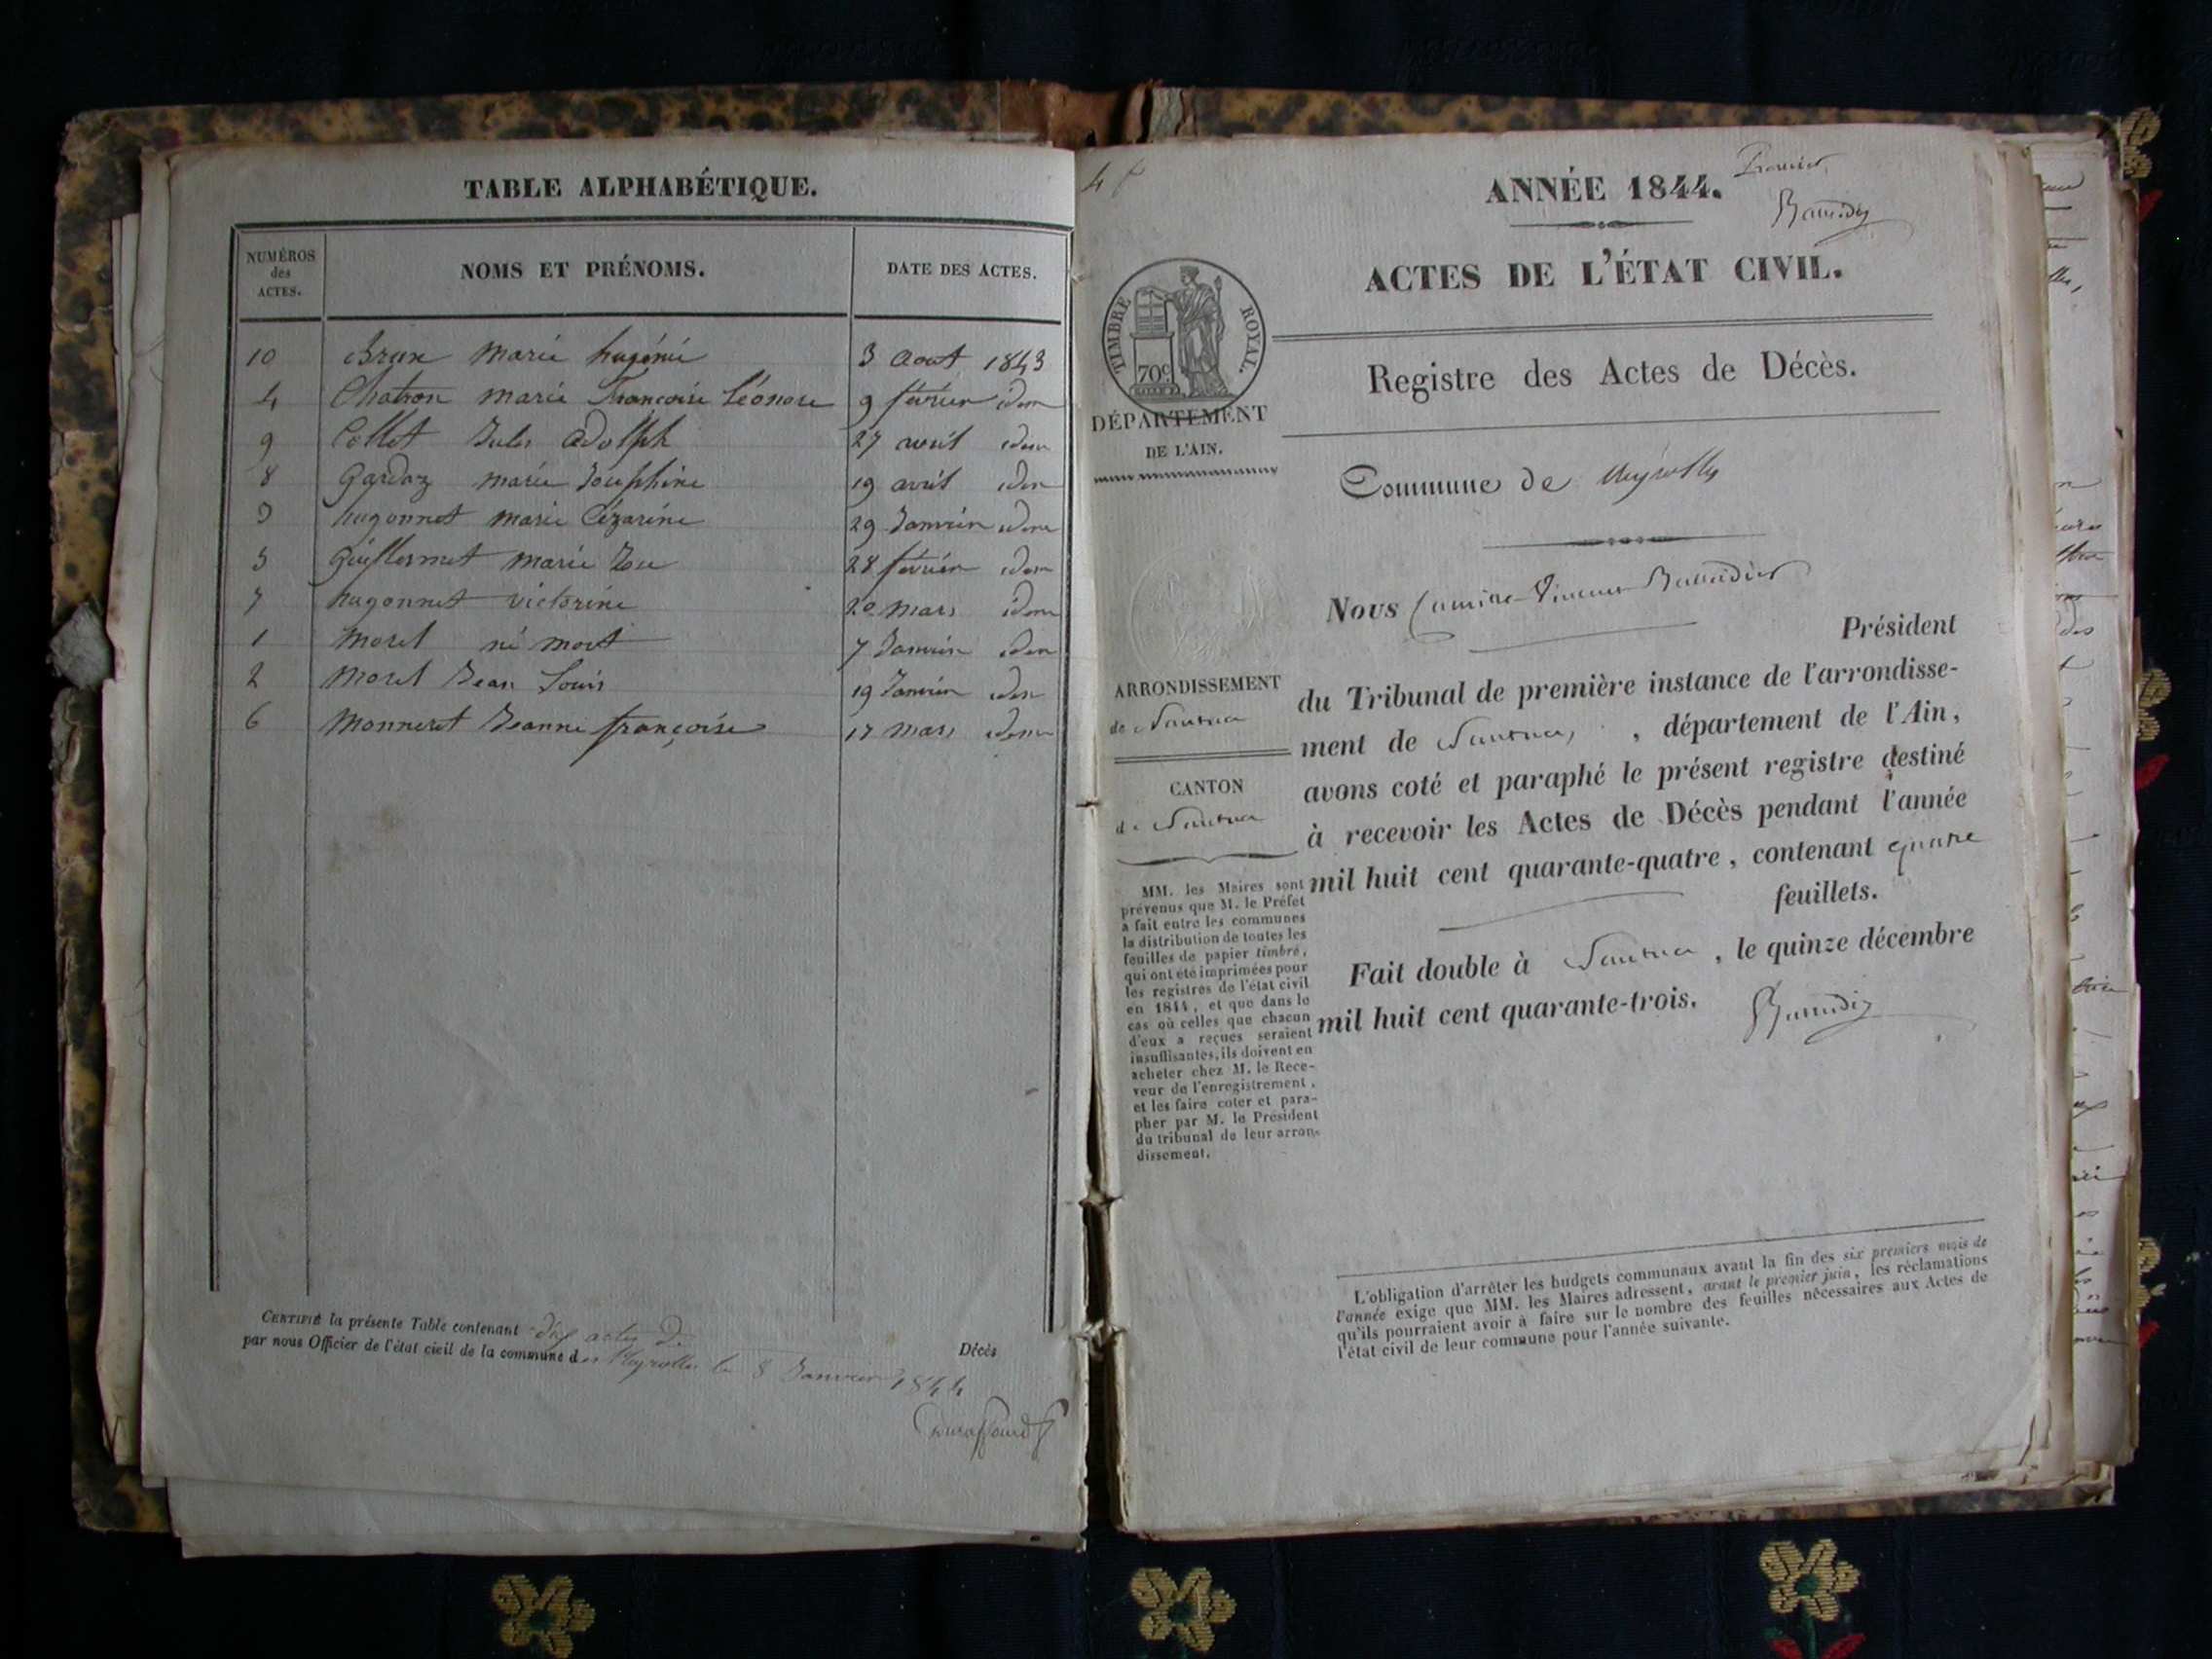 TABLE ALPHABÉTIQUE.
NUMÉROS des ACTES. NOMS ET PRÉNOMS. DATE DES ACTES.
10 Brun marie hugénie 3 aout 1843
4 Chatron marie françoise Léonore 9 février idem
9 Collet Jules adolph 27 avril idem
8 Gardaz marie Josephine 19 avril idem
3 hugonnet marie Cézarine 29 Janvier idem
5 Guillermet marie 28 février idem
7 hugonnet victorine 20 mars idem
1 Morel né mort 7 Janvier idem
2 Morel Jean Louis 19 Janvier idem
6 Monneret Jeanne françoise 17 mars idem
CERTIFIÉ la présente Table contenant dix actes de Décès
par nous Officier de l'état civil de la commune des Neyrolles le 8 Janvier 1844
4 f
Premier
ANNÉE 1844.
ACTES DE L'ÉTAT CIVIL.
TIMBRE ROYAL.
70c
DÉPARTEMENT
DE L'AIN.
Registre des Actes de Décès.
Commune de Neyrolles
ARRONDISSEMENT
de Nantua
CANTON
de Nantua
MM. les Maires sont
prévenus que M. le Préfet
a fait entre les communes
la distribution de toutes les
feuilles de papier timbré,
qui ont été imprimées pour
les registres de l'état civil
en 1844, et que dans le
cas où celles que chacun
d'eux a reçues seraient
insuffisantes, ils doivent en
acheter chez M. le Rece-
veur de l'enregistrement,
et les faire coter et para-
pher par M. le Président
du tribunal de leur arron-
dissement.
Nous
Président
du Tribunal de première instance de l'arrondisse-
ment de Nantua, , département de l'Ain,
avons coté et paraphé le présent registre destiné
à recevoir les Actes de Décès pendant l'année
mil huit cent quarante-quatre, contenant quatre
feuillets.
Fait double à Nantua, le quinze décembre
mil huit cent quarante-trois.
L'obligation d'arrêter les budgets communaux avant la fin des six premiers mois de
l'année exige que MM. les Maires adressent, avant le premier juin, les réclamations
qu'ils pourraient avoir à faire sur le nombre des feuilles nécessaires aux Actes de
l'état civil de leur commune pour l'année suivante.